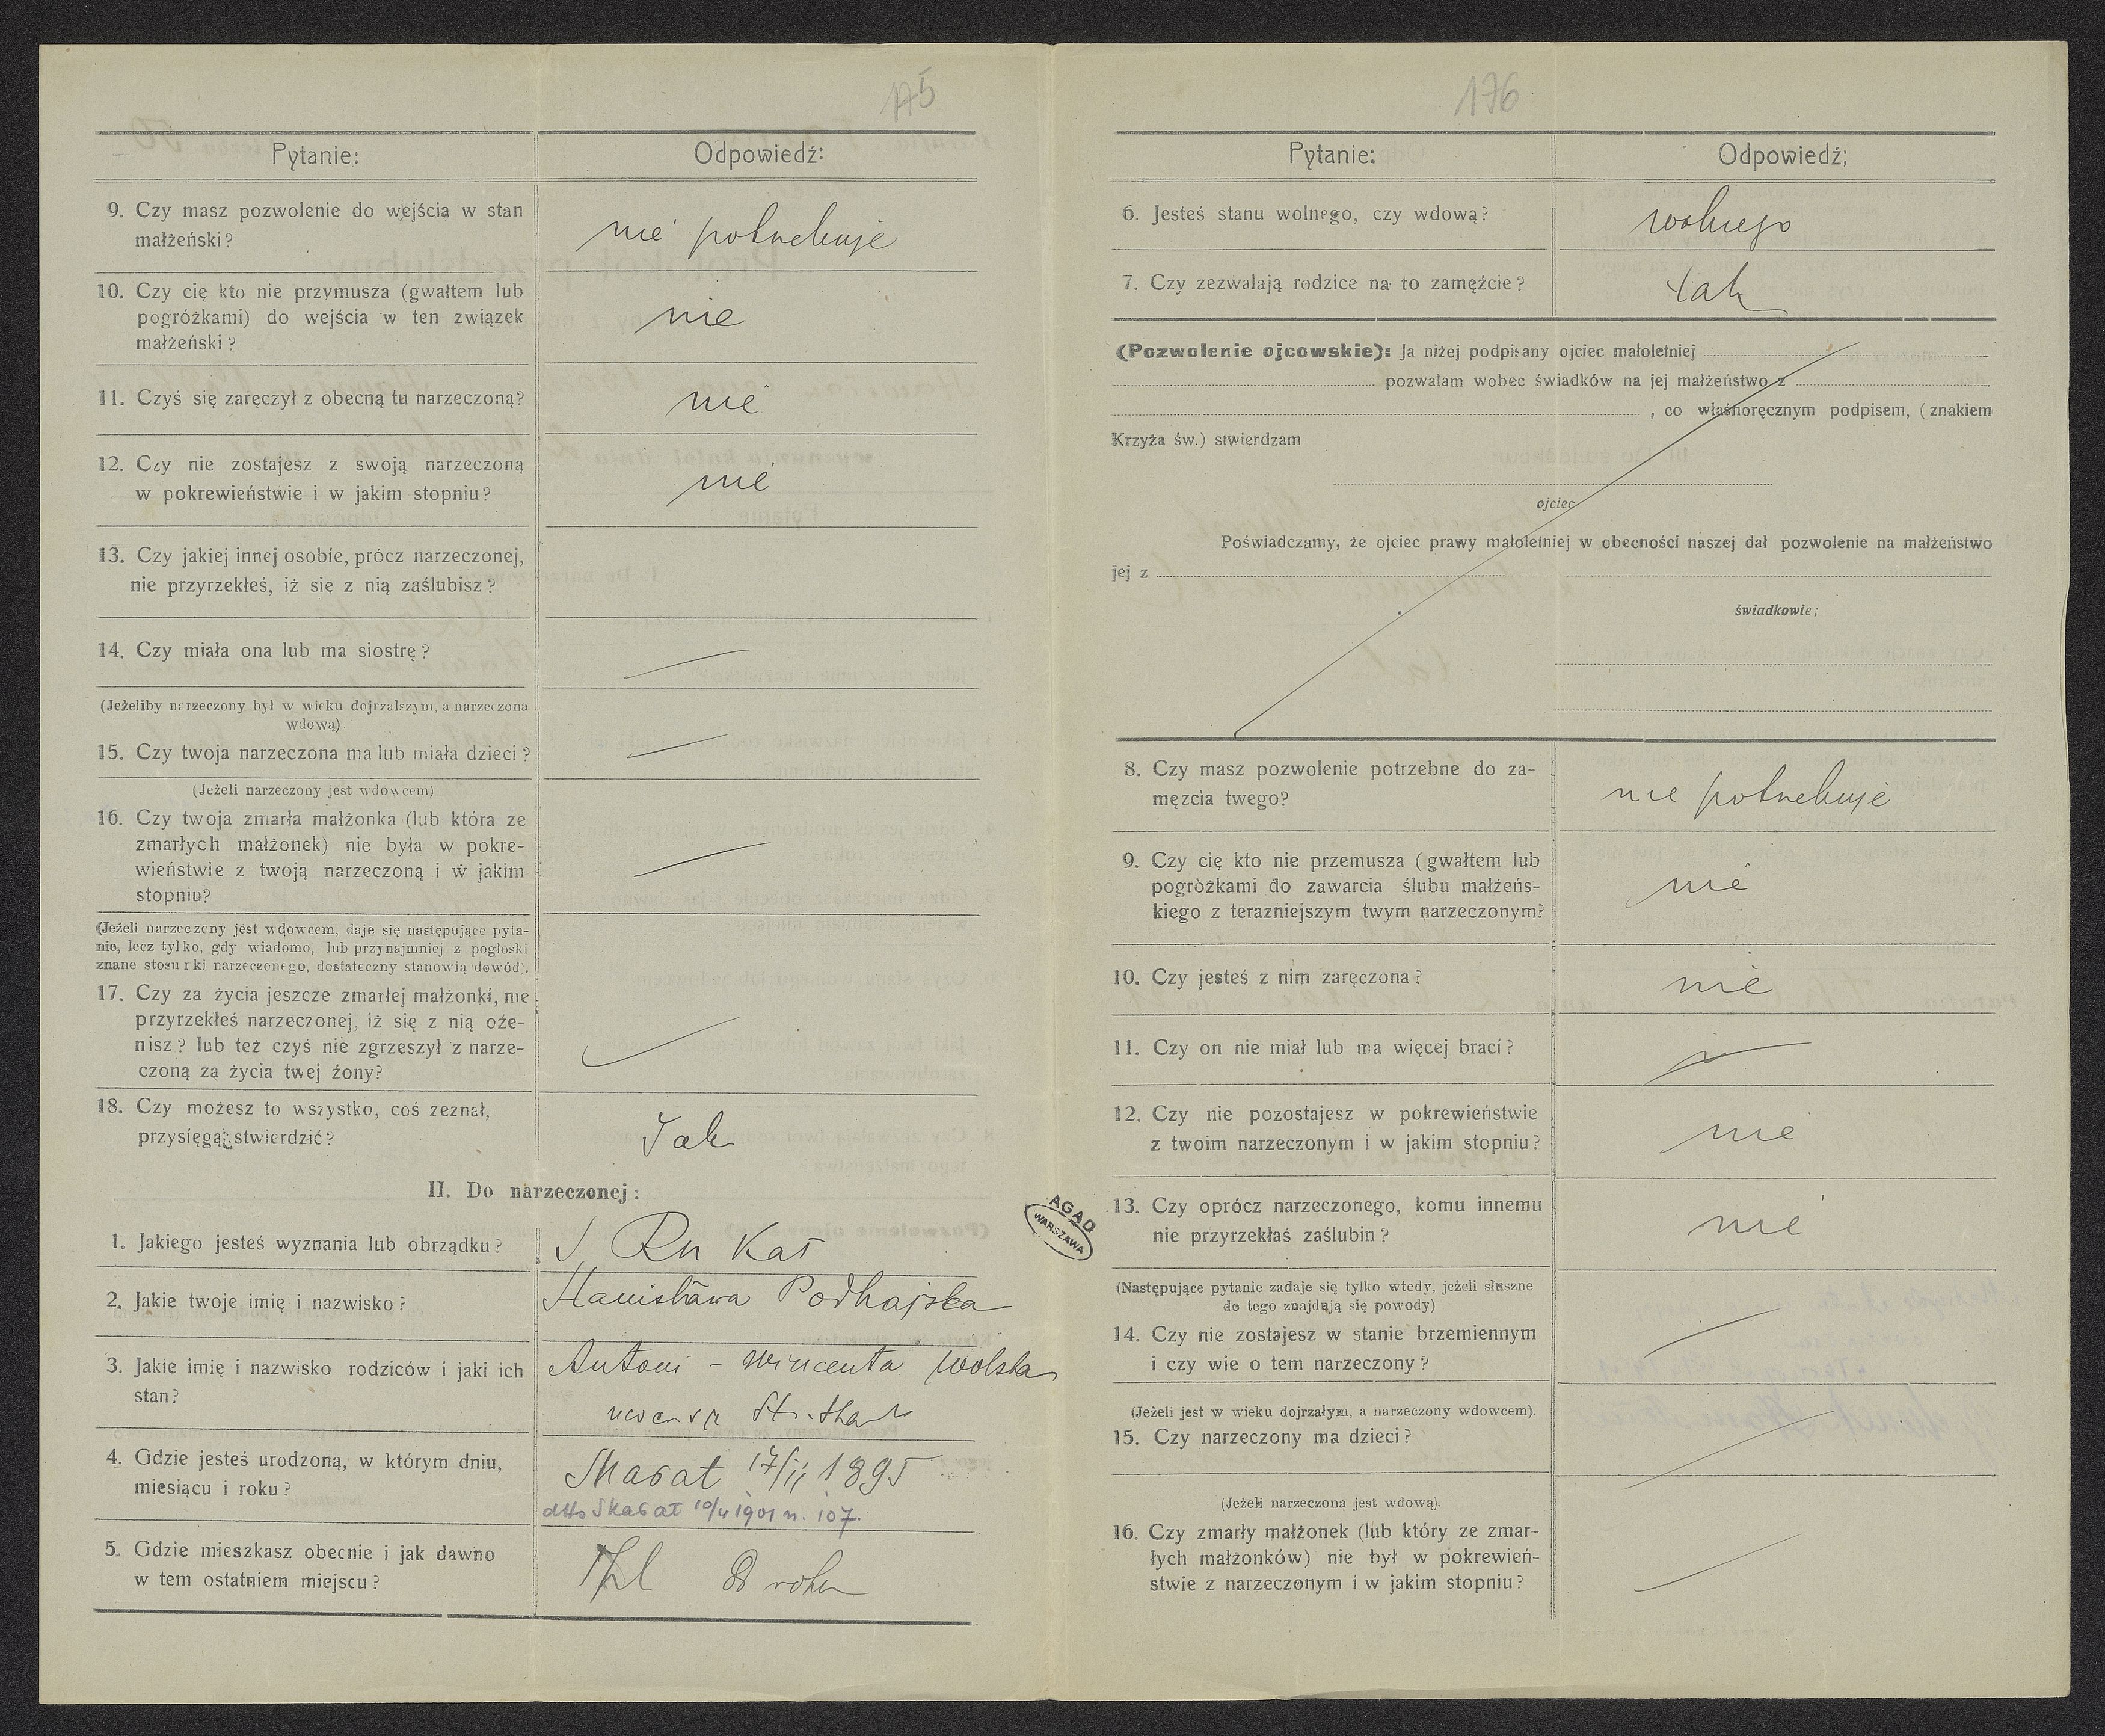 175
Pytanie:
Odpowiedź:
9. Czy masz pozwolenie do wejścia w stan
małżeński?
nie potrzebuje
10. Czy cię kto nie przymusza (gwałtem lub
pogróżkami) do wejścia w ten związek
małżeński?
nie
11. Czyś się zaręczył z obecną tu narzeczoną?
nie
12. Czy nie zostajesz z swoją narzeczoną
w pokrewieństwie i w jakim stopniu?
nie
13. Czy jakiej innej osobie, prócz narzeczonej,
nie przyrzekłeś, iż się z nią zaślubisz?
14. Czy miała ona lub ma siostrę?
(Jeżeliby narzeczony był w wieku dojrzalszym, a narzeczona
wdową).
15. Czy twoja narzeczona ma lub miała dzieci?
(Jeżeli narzeczony jest wdowcem)
16. Czy twoja zmarła małżonka (lub która ze
zmarłych małżonek) nie była w pokre-
wieństwie z twoją narzeczoną i w jakim
stopniu?
(Jeżeli narzeczony jest wdowcem, daje się następujące pyta-
nie, lecz tylko, gdy wiadomo, lub przynajmniej z pogłoski
znane stosunki narzeczonego, dostateczny stanowią dowód).
17. Czy za życia jeszcze zmarłej małżonki, nie
przyrzekłeś narzeczonej, iż się z nią oże-
nisz? lub też czyś nie zgrzeszył z narze-
czoną za życia twej żony?
18. Czy możesz to wszystko, coś zeznał,
przysięgą stwierdzić?
Tak
II. Do narzeczonej:
1. Jakiego jesteś wyznania lub obrządku?
Rz Kat
2. Jakie twoje imię i nazwisko?
Stanisława Podhajska
3. Jakie imię i nazwisko rodziców i jaki ich
stan?
Antoni - Wincenta Wolska
4. Gdzie jesteś urodzoną, w którym dniu,
miesiącu i roku?
Skałat 17/11 1895
dtto Skałat 10/4 1901 n. 107.
5. Gdzie mieszkasz obecnie i jak dawno
w tem ostatniem miejscu?
Tpl roku
AGAD
WARSZAWA
176
Pytanie:
Odpowiedź;
6. Jesteś stanu wolnego, czy wdową?
wolnego
7. Czy zezwalają rodzice na to zamęźcie?
tak
(Pozwolenie ojcowskie): Ja niżej podpisany ojciec małoletniej
pozwalam wobec świadków na jej małżeństwo z
, co własnoręcznym podpisem, (znakiem
Krzyża św.) stwierdzam
ojciec
Poświadczamy, że ojciec prawy małoletniej w obecności naszej dał pozwolenie na małżeństwo
jej z
świadkowie;
8. Czy masz pozwolenie potrzebne do za-
męzcia twego?
nie potrzebuje
9. Czy cię kto nie przemusza (gwałtem lub
pogròżkami do zawarcia ślubu małżeńs-
kiego z terazniejszym twym narzeczonym?
nie
10. Czy jesteś z nim zaręczona?
nie
11. Czy on nie miał lub ma więcej braci?
12. Czy nie pozostajesz w pokrewieństwie
z twoim narzeczonym i w jakim stopniu?
nie
13. Czy oprócz narzeczonego, komu innemu
nie przyrzekłaś zaślubin?
nie
(Następujące pytanie zadaje się tylko wtedy, jeżeli słuszne
do tego znajdują się powody)
14. Czy nie zostajesz w stanie brzemiennym
i czy wie o tem narzeczony?
(Jeżeli jest w wieku dojrzałym, a narzeczony wdowcem).
15. Czy narzeczony ma dzieci?
(Jeżeli narzeczona jest wdową).
16. Czy zmarły małżonek (lub który ze zmar-
łych małżonków) nie był w pokrewień-
stwie z narzeczonym i w jakim stopniu?